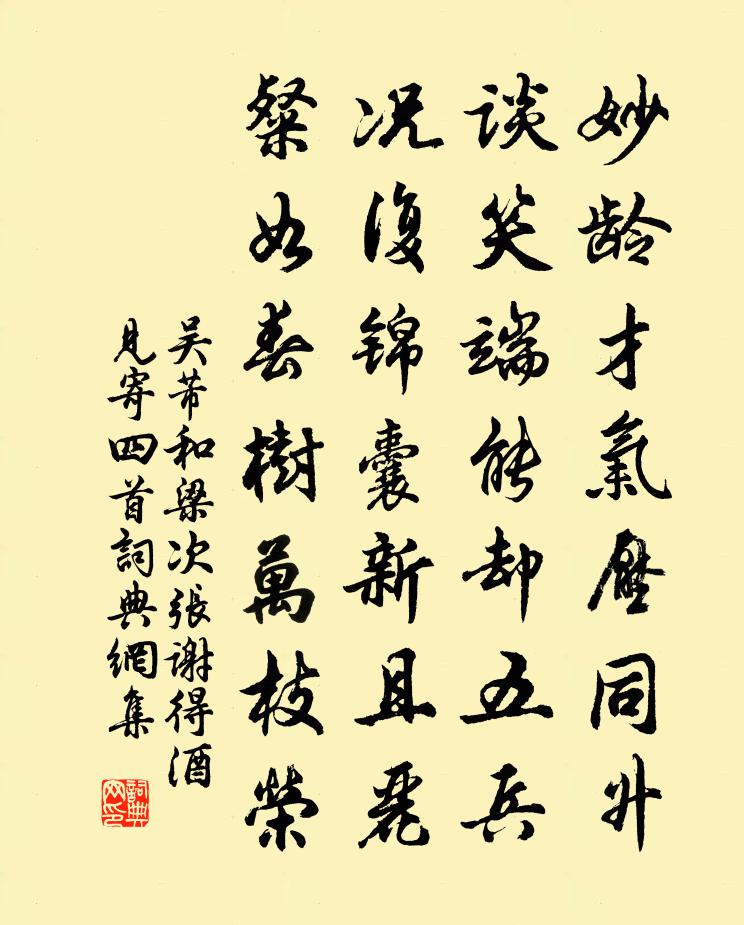 妙龄才氣壓同升
谈笑端能却五兵
况復锦囊新且麗
粲如春樹萬枝榮
吴芾和梁次張谢得酒
見寄四首詞典網集
詞典网印